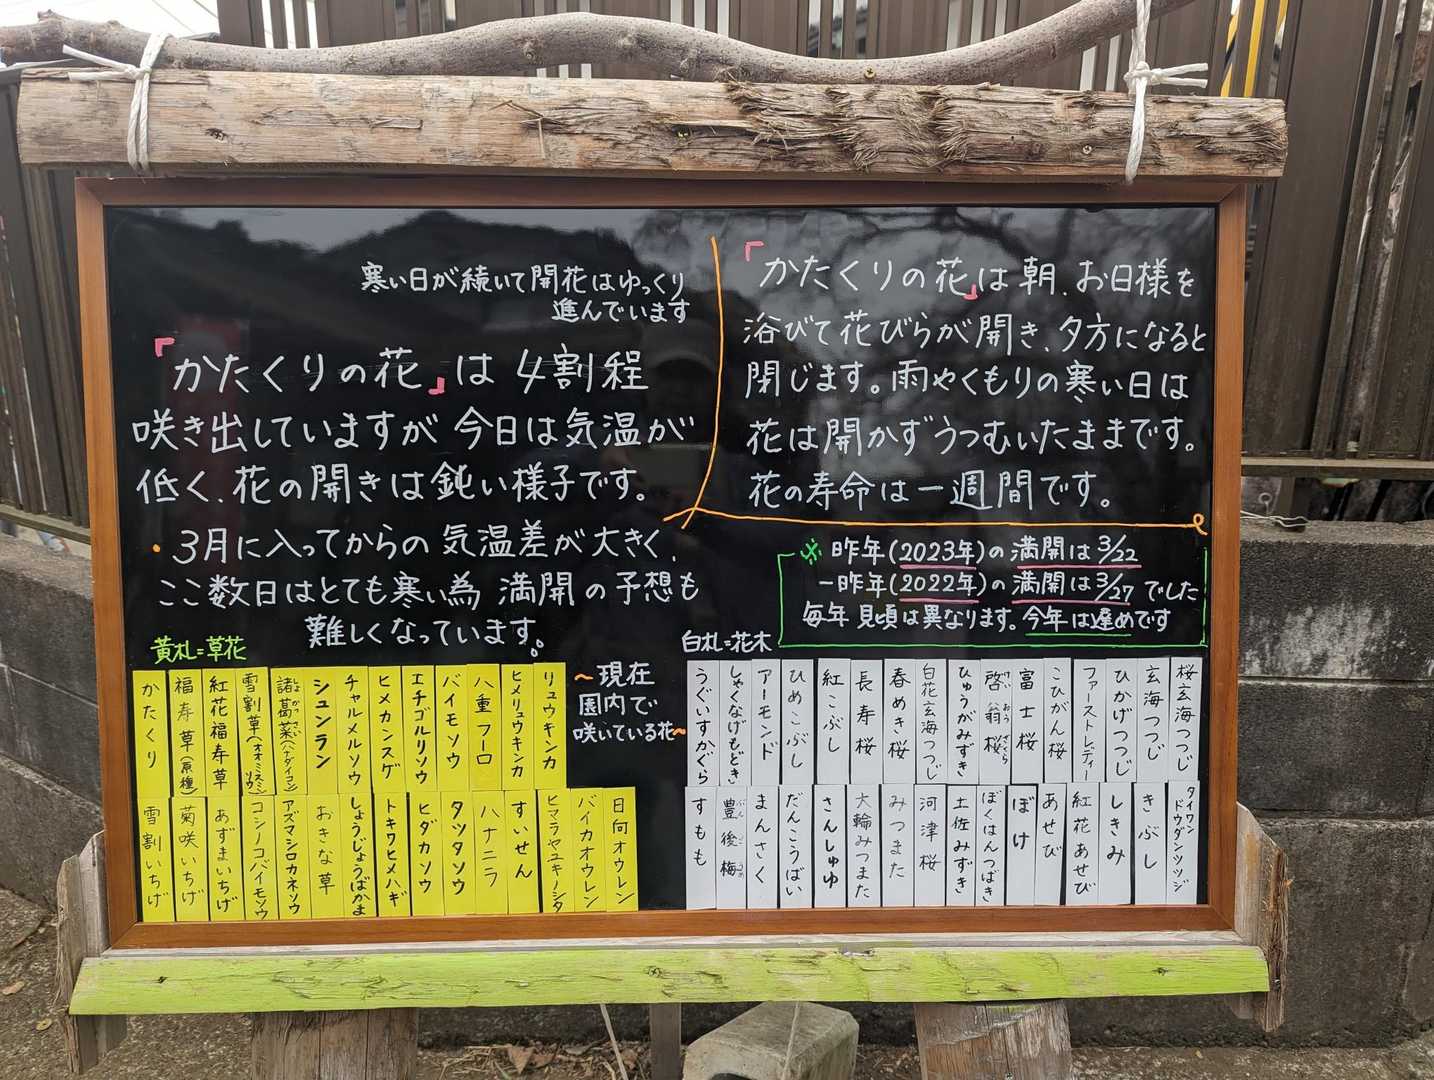 寒い日が続いて開花はゆっくり
進んでいます
「かたくりの花」は4割程
咲き出していますが今日は気温が
低く、花の開きは鈍い様子です。
・3月に入ってからの気温差が大きく、
ここ数日はとても寒い為 満開の予想も
難しくなっています。
「かたくりの花」は朝、お日様を
浴びて花びらが開き、夕方になると
閉じます。雨やくもりの寒い日は
花は開かずうつむいたままです。
花の寿命は一週間です。
※昨年(2023年)の満開は3/22
一昨年(2022年)の満開は3/27でした
毎年見頃は異なります。今年は遅めです
黄札=草花
かたくり
福寿草(原種)
紅花福寿草
雪割草(オオミスミソウ)
諸葛菜(ハナダイコン)
しょかっさい
シュンラン
チャルメルソウ
ヒメカンスゲ
エチゴルリソウ
バイモソウ
八重フーロ
ヒメリュウキンカ
リュウキンカ
雪割いちげ
菊咲いちげ
あずまいちげ
コシノコバイモソウ
アズマシロカネソウ
おきな草
しょうじょうばかま
トキワヒメハギ
ヒダカソウ
タツタソウ
ハナニラ
すいせん
ヒマラヤユキノシタ
バイカオウレン
日向オウレン
~現在
園内で
咲いている花~
白札=花木
うぐいすかぐら
しゃくなげもどき
アーモンド
ひめこぶし
紅こぶし
長寿桜
春めき桜
白花玄海つつじ
ひゅうがみずき
啓翁桜
けいおうざくら
富士桜
こひがん桜
ファーストレディー
ひかげつつじ
玄海つつじ
桜玄海つつじ
すもも
豊後梅
ぶんごうめ
まんさく
だんこうばい
さんしゅゆ
大輪みつまた
みつまた
河津桜
土佐みずき
ぼくはんつばき
ぼけ
あせび
紅花あせび
しきみ
きぶし
タイワンドウダンツツジ